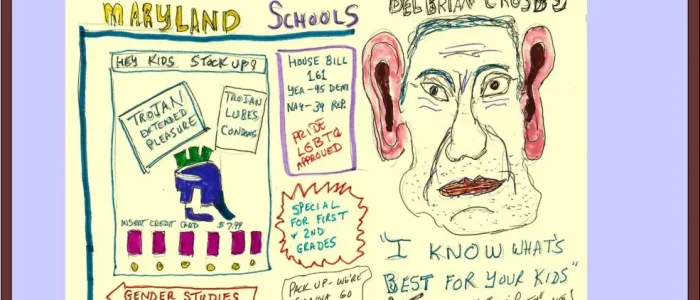 MARYLAND SCHOOLS
DEL BRIAN CROSBY
HEY KIDS STOCK UP!
TROJAN
EXTENDED
PLEASURE
TROJAN
LUBES
CONDOMS
INSERT CREDIT CARD $7.99
HOUSE BILL
161
YEA-95 DEM
NAY-39 REP.
PRIDE
LGBTQ
APPROVED
SPECIAL
FOR FIRST
& 2ND
GRADES
GENDER STUDIES
PACK UP-WE'RE
GONNA GO
"I KNOW WHAT'S
BEST FOR YOUR KIDS"